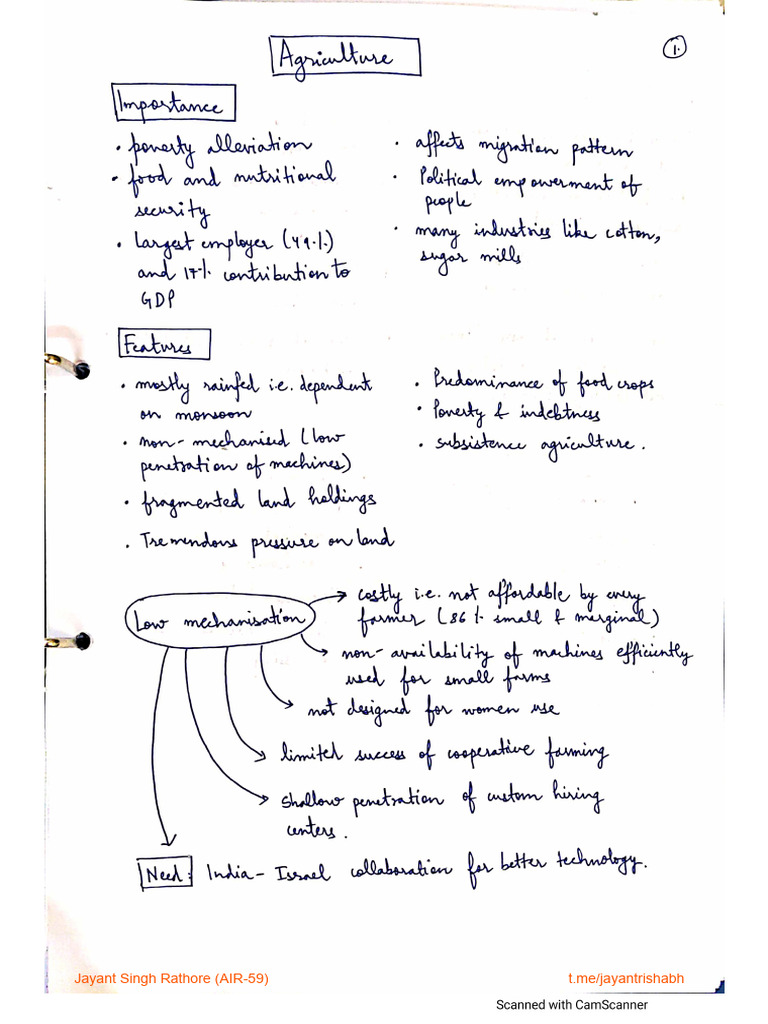 Agriculture
1.
Importance
• poverty alleviation
• food and nutritional
security
• largest employer (49%)
and 17% contribution to
GDP
• affects migration pattern
• Political empowerment of
people
• many industries like cotton,
sugar mills
Features
• mostly rainfed i.e. dependent
on monsoon
• non-mechanised (low
penetration of machines)
• fragmented land holdings
• Tremendous pressure on land
• Predominance of food crops
• Poverty & indebtness
• subsistence agriculture.
Low mechanisation
costly i.e. not affordable by every
farmer (86% small & marginal)
non-availability of machines efficiently
used for small farms
not designed for women use
limited success of cooperative farming
shallow penetration of custom hiring
centers.
Need: India-Israel collaboration for better technology.
Jayant Singh Rathore (AIR-59)
t.me/jayantrishabh
Scanned with CamScanner